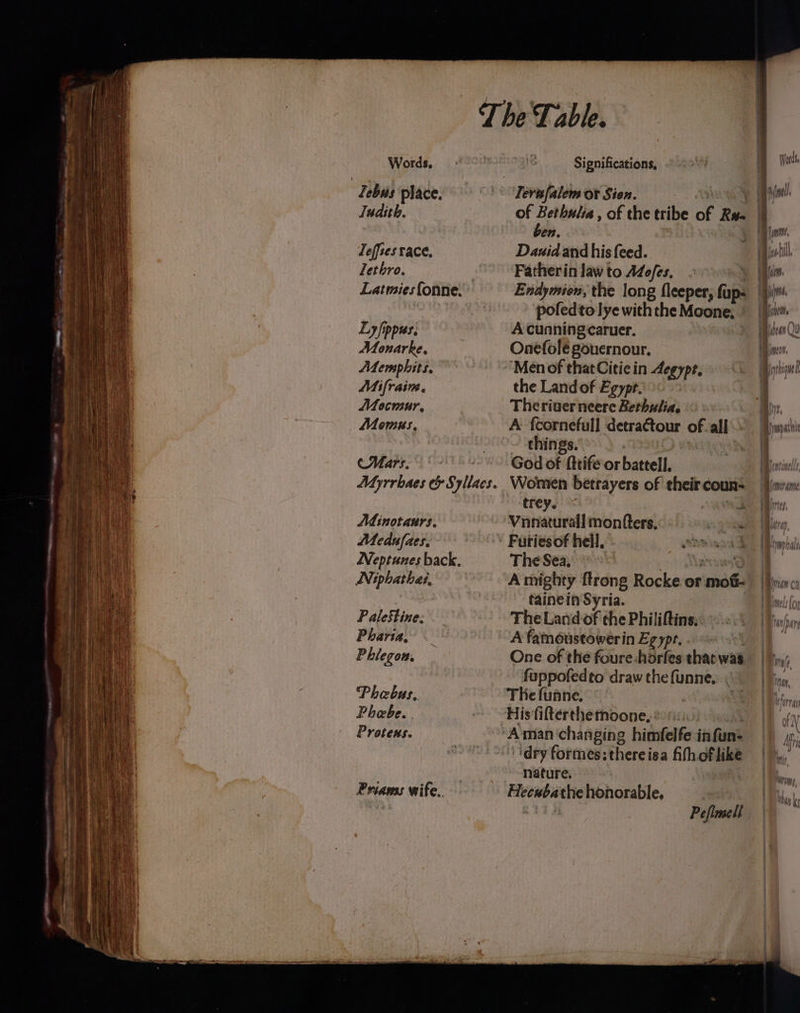 The Table.
Words. Significations,
Iebus place. Ierusalem or Sion.
Iudith. of Bethulia, of the tribe of Ru-
ben.
Iesses race. Dauid and his seed.
Iethro. Father in law to Moses.
Latmies sonne. Endymion, the long sleeper, sup-
posed to lye with the Moone.
Lysippus. A cunning caruer.
Monarke. One sole gouernour.
Memphits. Men of that Citie in Aegypt.
Misraim. the Land of Egypt.
Mocmur. The riuer neere Bethulia.
Momus. A scornefull detractour of all
things.
Mars. God of strife or battell.
Myrrhaes & Syllaes. Women betrayers of their coun-
trey.
Minotaurs. Vnnaturall monsters.
Medusaes. Furies of hell.
Neptunes back. The Sea.
Niphathai. A mighty strong Rocke or mou-
taine in Syria.
Palestine. The Land of the Philistins.
Pharia. A famous tower in Egypt.
Phlegon. One of the foure horses that was
supposed to draw the sunne.
Phœbus. The sunne.
Phœbe. His sister the moone.
Proteus. A man changing himselfe in sun-
dry formes: there is a fish of like
nature.
Priams wife. Hecuba the honorable.
Pesimell